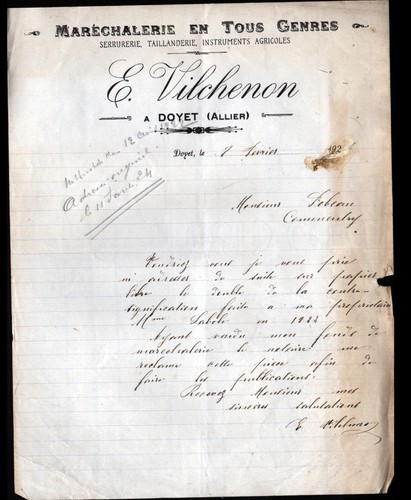 MARÉCHALERIE EN TOUS GENRES
SERRURERIE, TAILLANDERIE, INSTRUMENTS AGRICOLES
E. Vilchenon
A DOYET (ALLIER)
Doyet, le 8 fevrier 192
le 11 Janv. 24
Monsieur Lebeau
Commentry
Voudriez vous je vous prie
m adresser de suite sur papier
libre le double de la contre
signification faite a ma propriétaire
Mme Labole en 1923
Ayant vendu mon fonds de
marechalerie le notaire me
reclame cette piece afin de
faire les publications.
Recevez Monsieur mes
sinceres salutations
E. Vilchenon